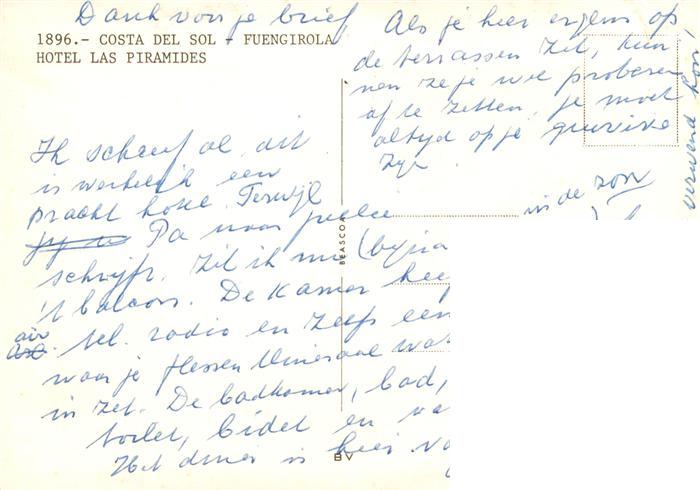 Dank voor je brief
1896.- COSTA DEL SOL - FUENGIROLA
HOTEL LAS PIRAMIDES
Ik schreef al dit
is werkelijk een
pracht hotel. Terwijl
Pa naar jullie
schrijft. Zit ik nu (bijna
't balcon. De kamer hee
air tel. radio en zelfs een
waar je flessen mineraal wat
in zet. De badkamer, bad,
toilet, bidet en wa
Het diner is hier vo
BEASCOA
BV
Als je hier ergens op
de terrassen zit, kun
nen ze je wel proberen
af te zetten, je moet
altijd op je quivive
zijn.
in de zon
verwend hoor,